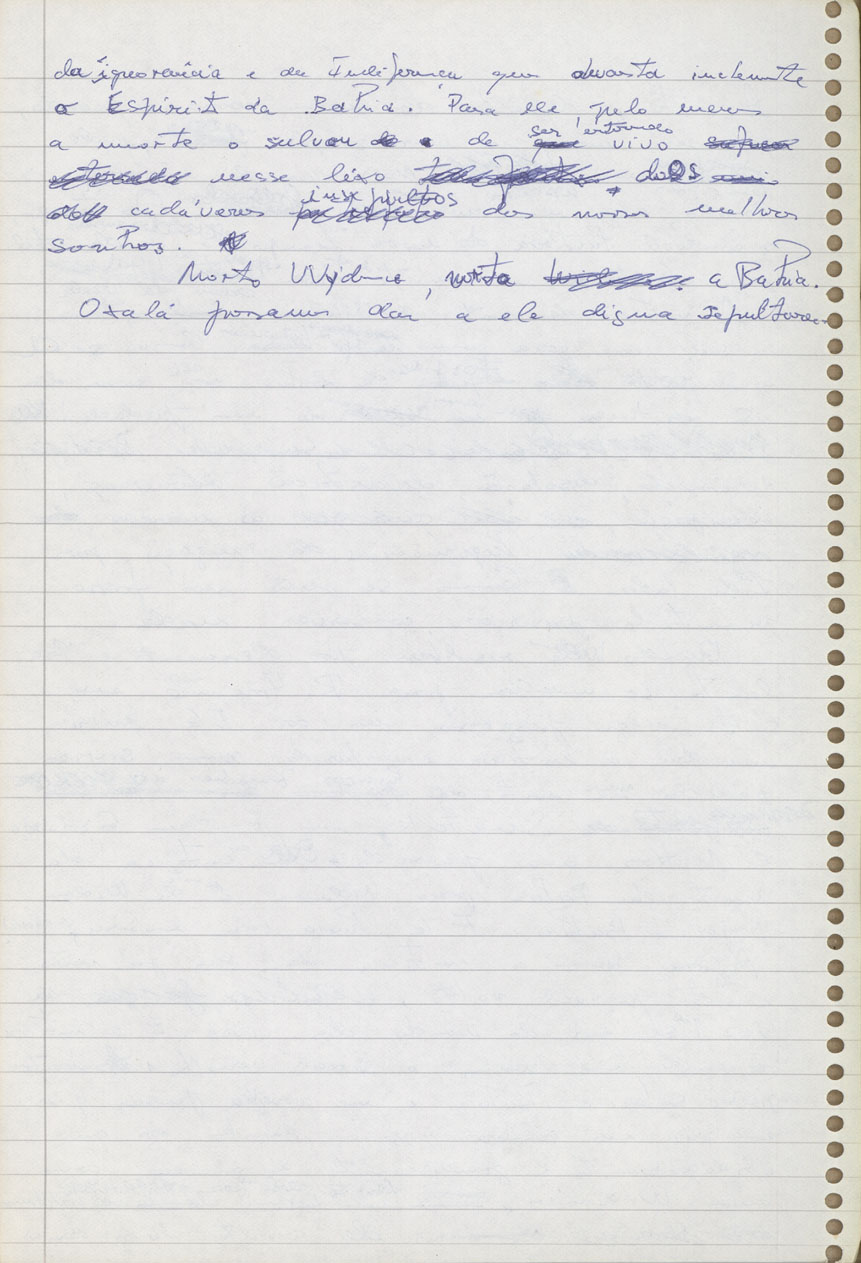 da ignorância e da Indiferença que devasta inclemente
o Espírito da Bahia. Para ele, pelo menos
a morte o salvou de ser enterrado vivo
nesse lixo dos
cadáveres insepultos dos nossos melhores
sonhos.
Morto Wydne, morta a Bahia.
Oxalá possamos dar a ele digna sepultura.